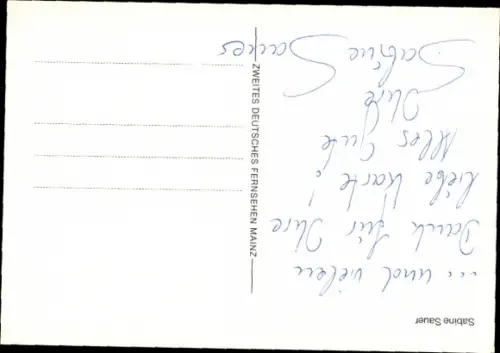 Sabine Sauer
... und vielen
Dank für Ihre
liebe Karte!
Alles Gute
Ihre
Sabine Sauer
ZWEITES DEUTSCHES FERNSEHEN MAINZ